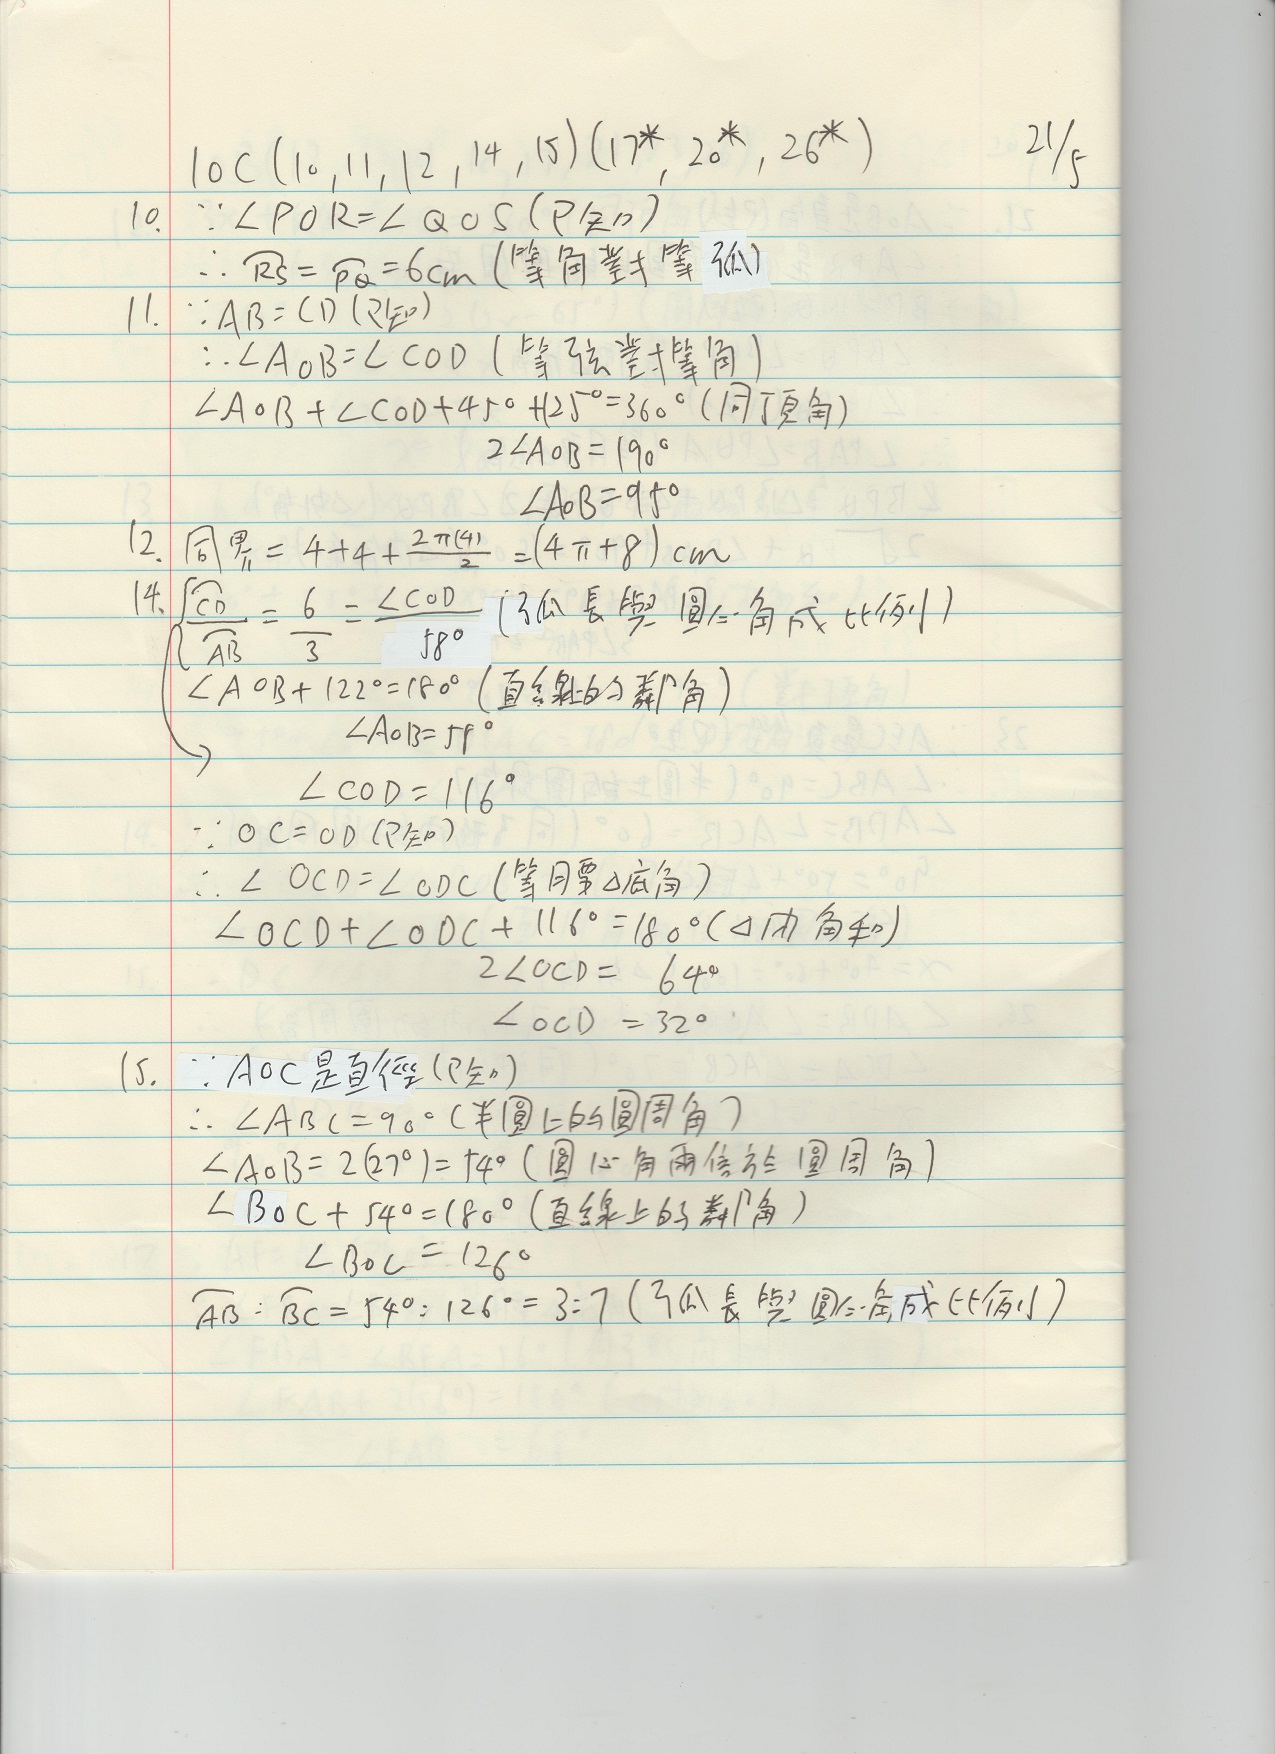 10C (10, 11, 12, 14, 15) (17*, 20*, 26*) 21/5
10. ∵∠POR=∠QOS (已知)
∴ R͡S = P͡Q = 6cm (等角對等弧)
11. ∵AB=CD (已知)
∴∠AOB=∠COD (等弦對等角)
∠AOB+∠COD+45°+125°=360° (同頂角)
2∠AOB=190°
∠AOB=95°
12. 周界 = 4+4+2π(4)/2 = (4π+8) cm
14. C͡D/A͡B = 6/3 = ∠COD/58° (弧長與圓心角成比例)
∠AOB+122°=180° (直線上的鄰角)
∠AOB=58°
∠COD=116°
∵OC=OD (已知)
∴∠OCD=∠ODC (等腰△底角)
∠OCD+∠ODC+116°=180° (△內角和)
2∠OCD= 64°
∠OCD = 32°
15. ∵AOC是直徑 (已知)
∴∠ABC=90° (半圓上的圓周角)
∠AOB=2(27°)=54° (圓心角兩倍於圓周角)
∠BOC+54°=180° (直線上的鄰角)
∠BOC=126°
A͡B : B͡C = 54° : 126° = 3:7 (弧長與圓心角成比例)